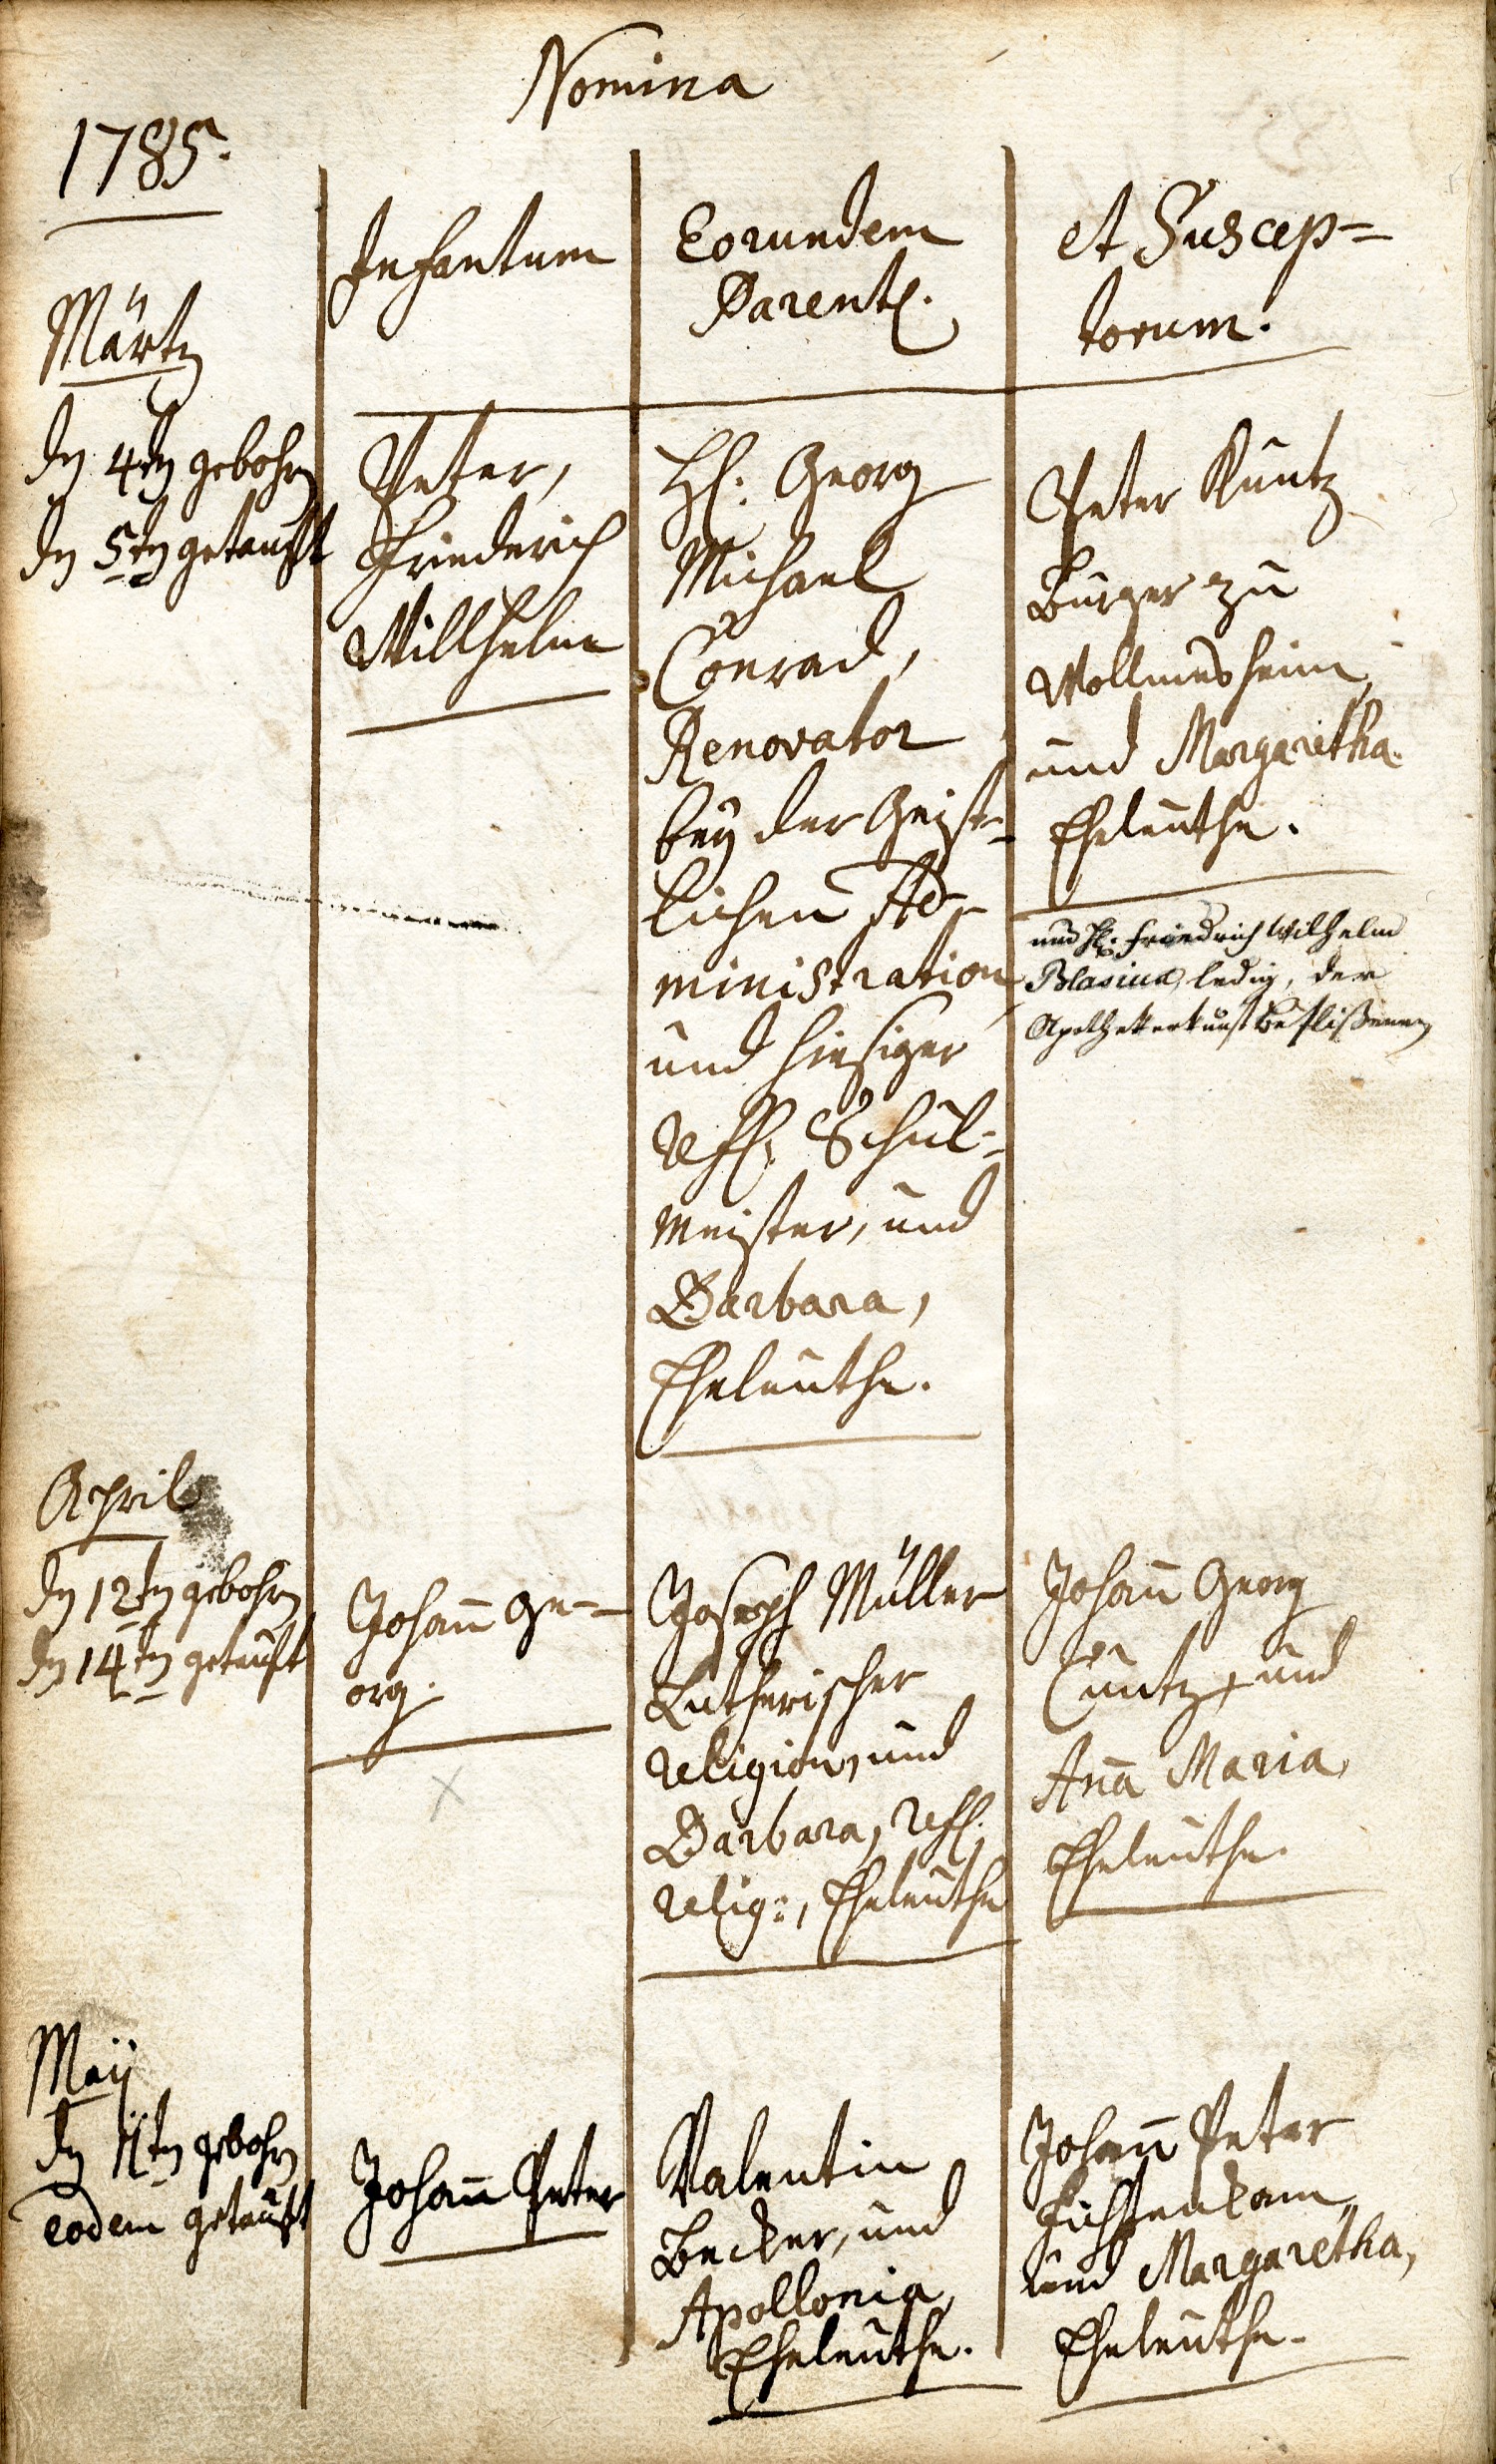 Nomina
1785.
Infantum
Eorundem
Parent.
et Suscep=
torum.
Märtz
dn 4tn gebohrn
dn 5tn getaufft
Peter,
Friederich
Willhelm
H. Georg
Michael
Conrad,
Renovator
bey der Geist=
lichen Ad=
ministration
und hiesiger
Reff. Schul=
meister, und
Barbara,
Eheleuthe.
Peter Kuntz
Burger zu
Wollmesheim
und Margaretha
Eheleuthe.
und H. Friedrich Wilhelm
Blasius, ledig, der
Apothekerkunst Beflißenen
April
dn 12tn gebohrn
dn 14tn getauft
Johan̄ Ge=
org.
Joseph Müller
Lutherischer
religion, und
Barbara, Reff.
relig:, Eheleuthe
Johan̄ Georg
Cuntz, und
Anā Maria,
Eheleuthe.
Maÿ
dn 11tn gebohrn
eodem getauft
Johan̄ Peter
Valentin
Becker, und
Apollonia,
Eheleuthe.
Johan̄ Peter
und Margaretha,
Eheleuthe.